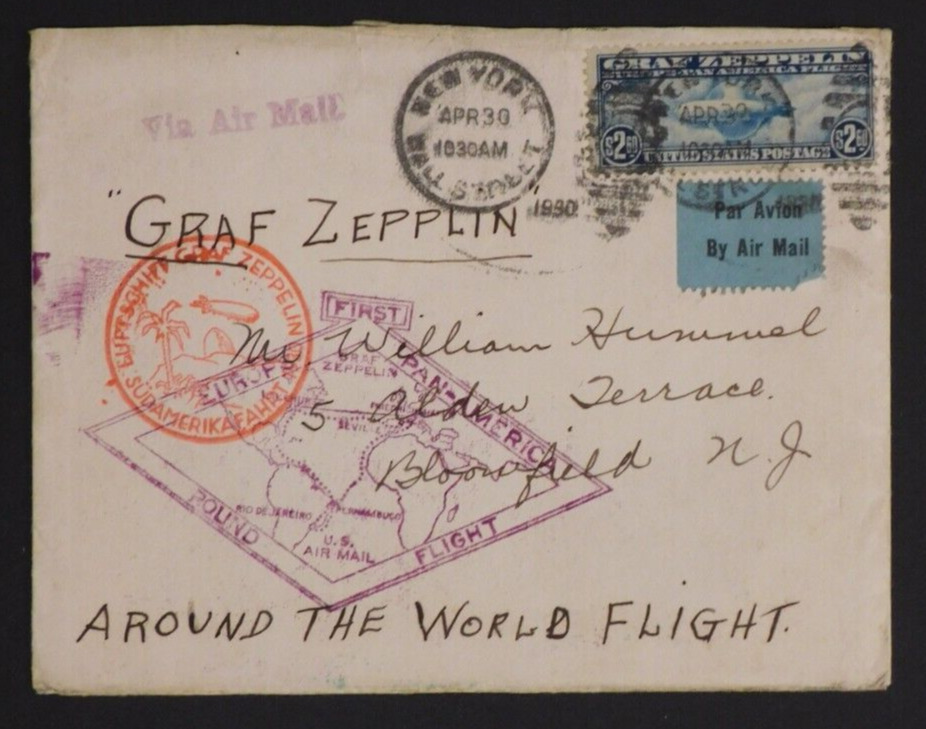 Via Air Mail
NEW YORK
APR 30
1030 AM
WALL STREET
1930
GRAF ZEPPELIN
EUROPE PAN-AMERICA FLIGHT
$2.60 UNITED STATES POSTAGE $2.60
APR 30
1030 AM
1930
Par Avion
By Air Mail
"GRAF ZEPPLIN"
LUFTSCHIFF GRAF ZEPPELIN
SÜDAMERIKAFAHRT
FIRST
EUROPE
PAN-AMERICA
GRAF
ZEPPELIN
SEVILLE
RIO DE JANEIRO
PERNAMBUCO
U.S.
AIR MAIL
ROUND
FLIGHT
Mr. William Hummel
5 Alden Terrace.
Bloomfield N.J
AROUND THE WORLD FLIGHT.